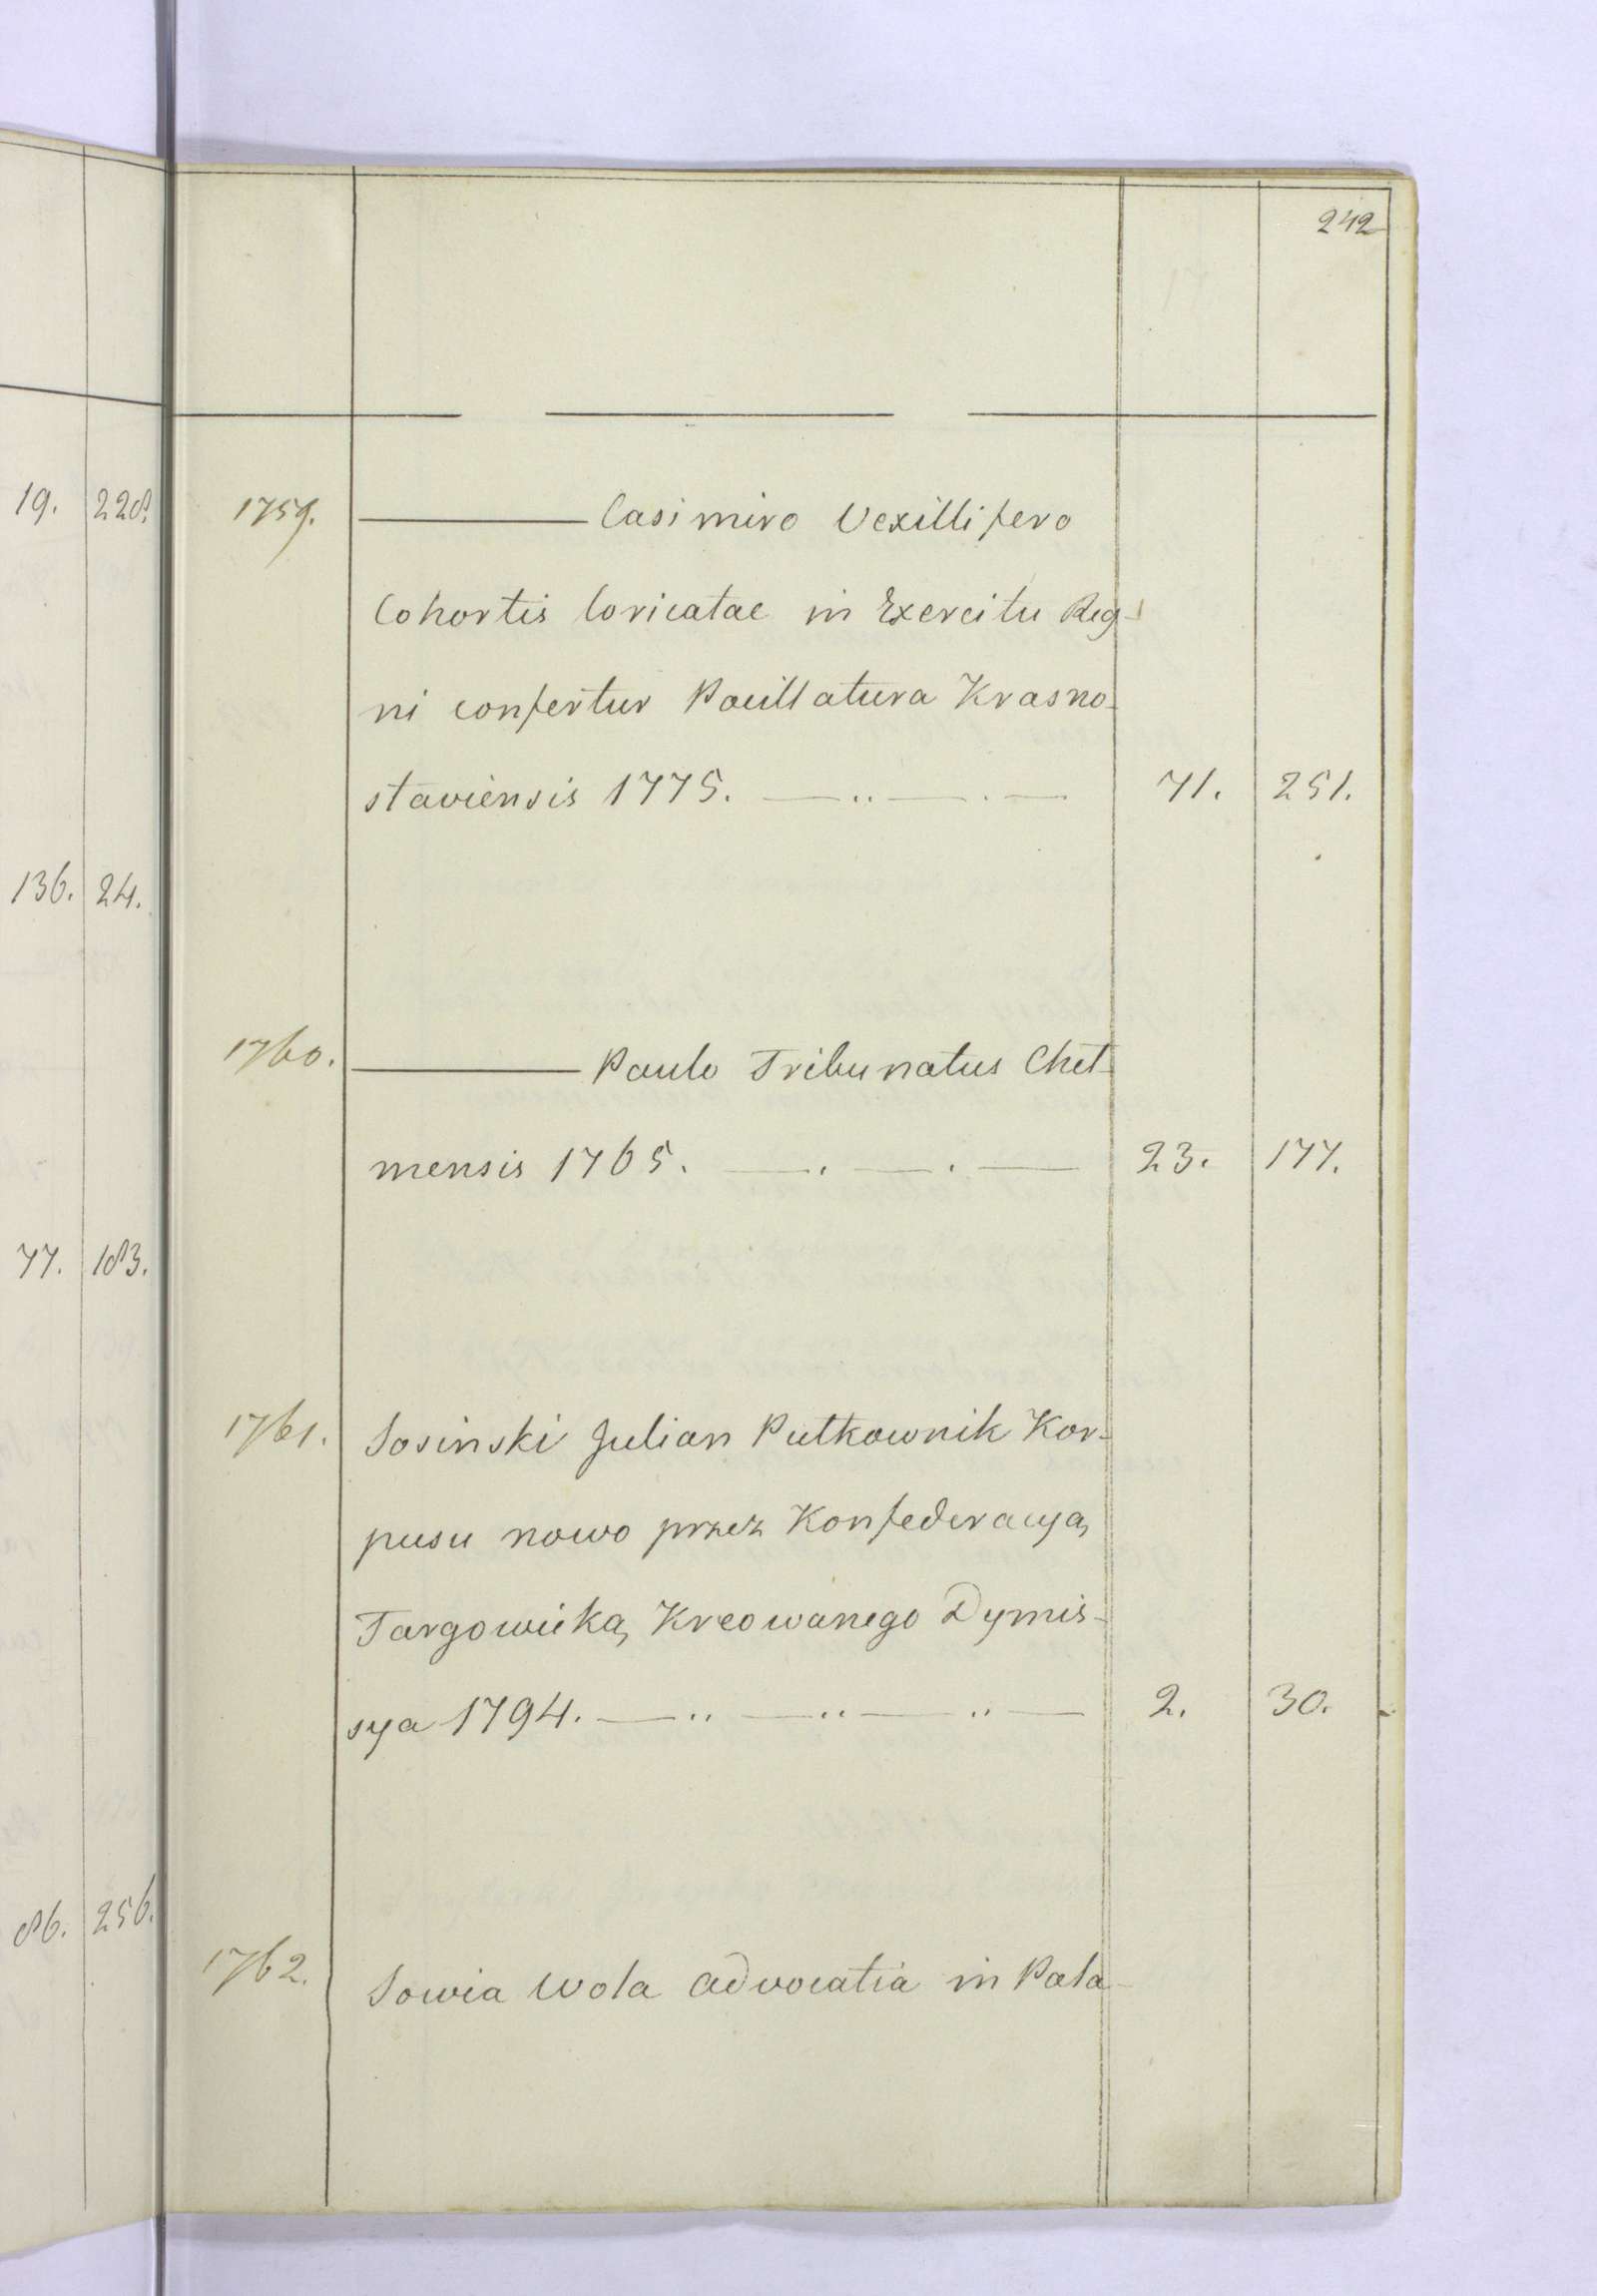 242
19. 228.
1759. Casimiro Vexillifero
Cohortis loricatae in Exercitu Reg-
ni confertur Pocillatura Krasno-
staviensis 1775. 71. 251.
136. 24.
1760. Paulo Tribunatus Cheł-
mensis 1765. 23. 177.
77. 183.
1761. Sosinski Julian Pułkownik Kor-
pusu nowo przez Konfederacyą
Targowicką Kreowanego Dymis-
sya 1794. 2. 30.
86. 256.
1762. Sowia Wola advocatia in Pala-